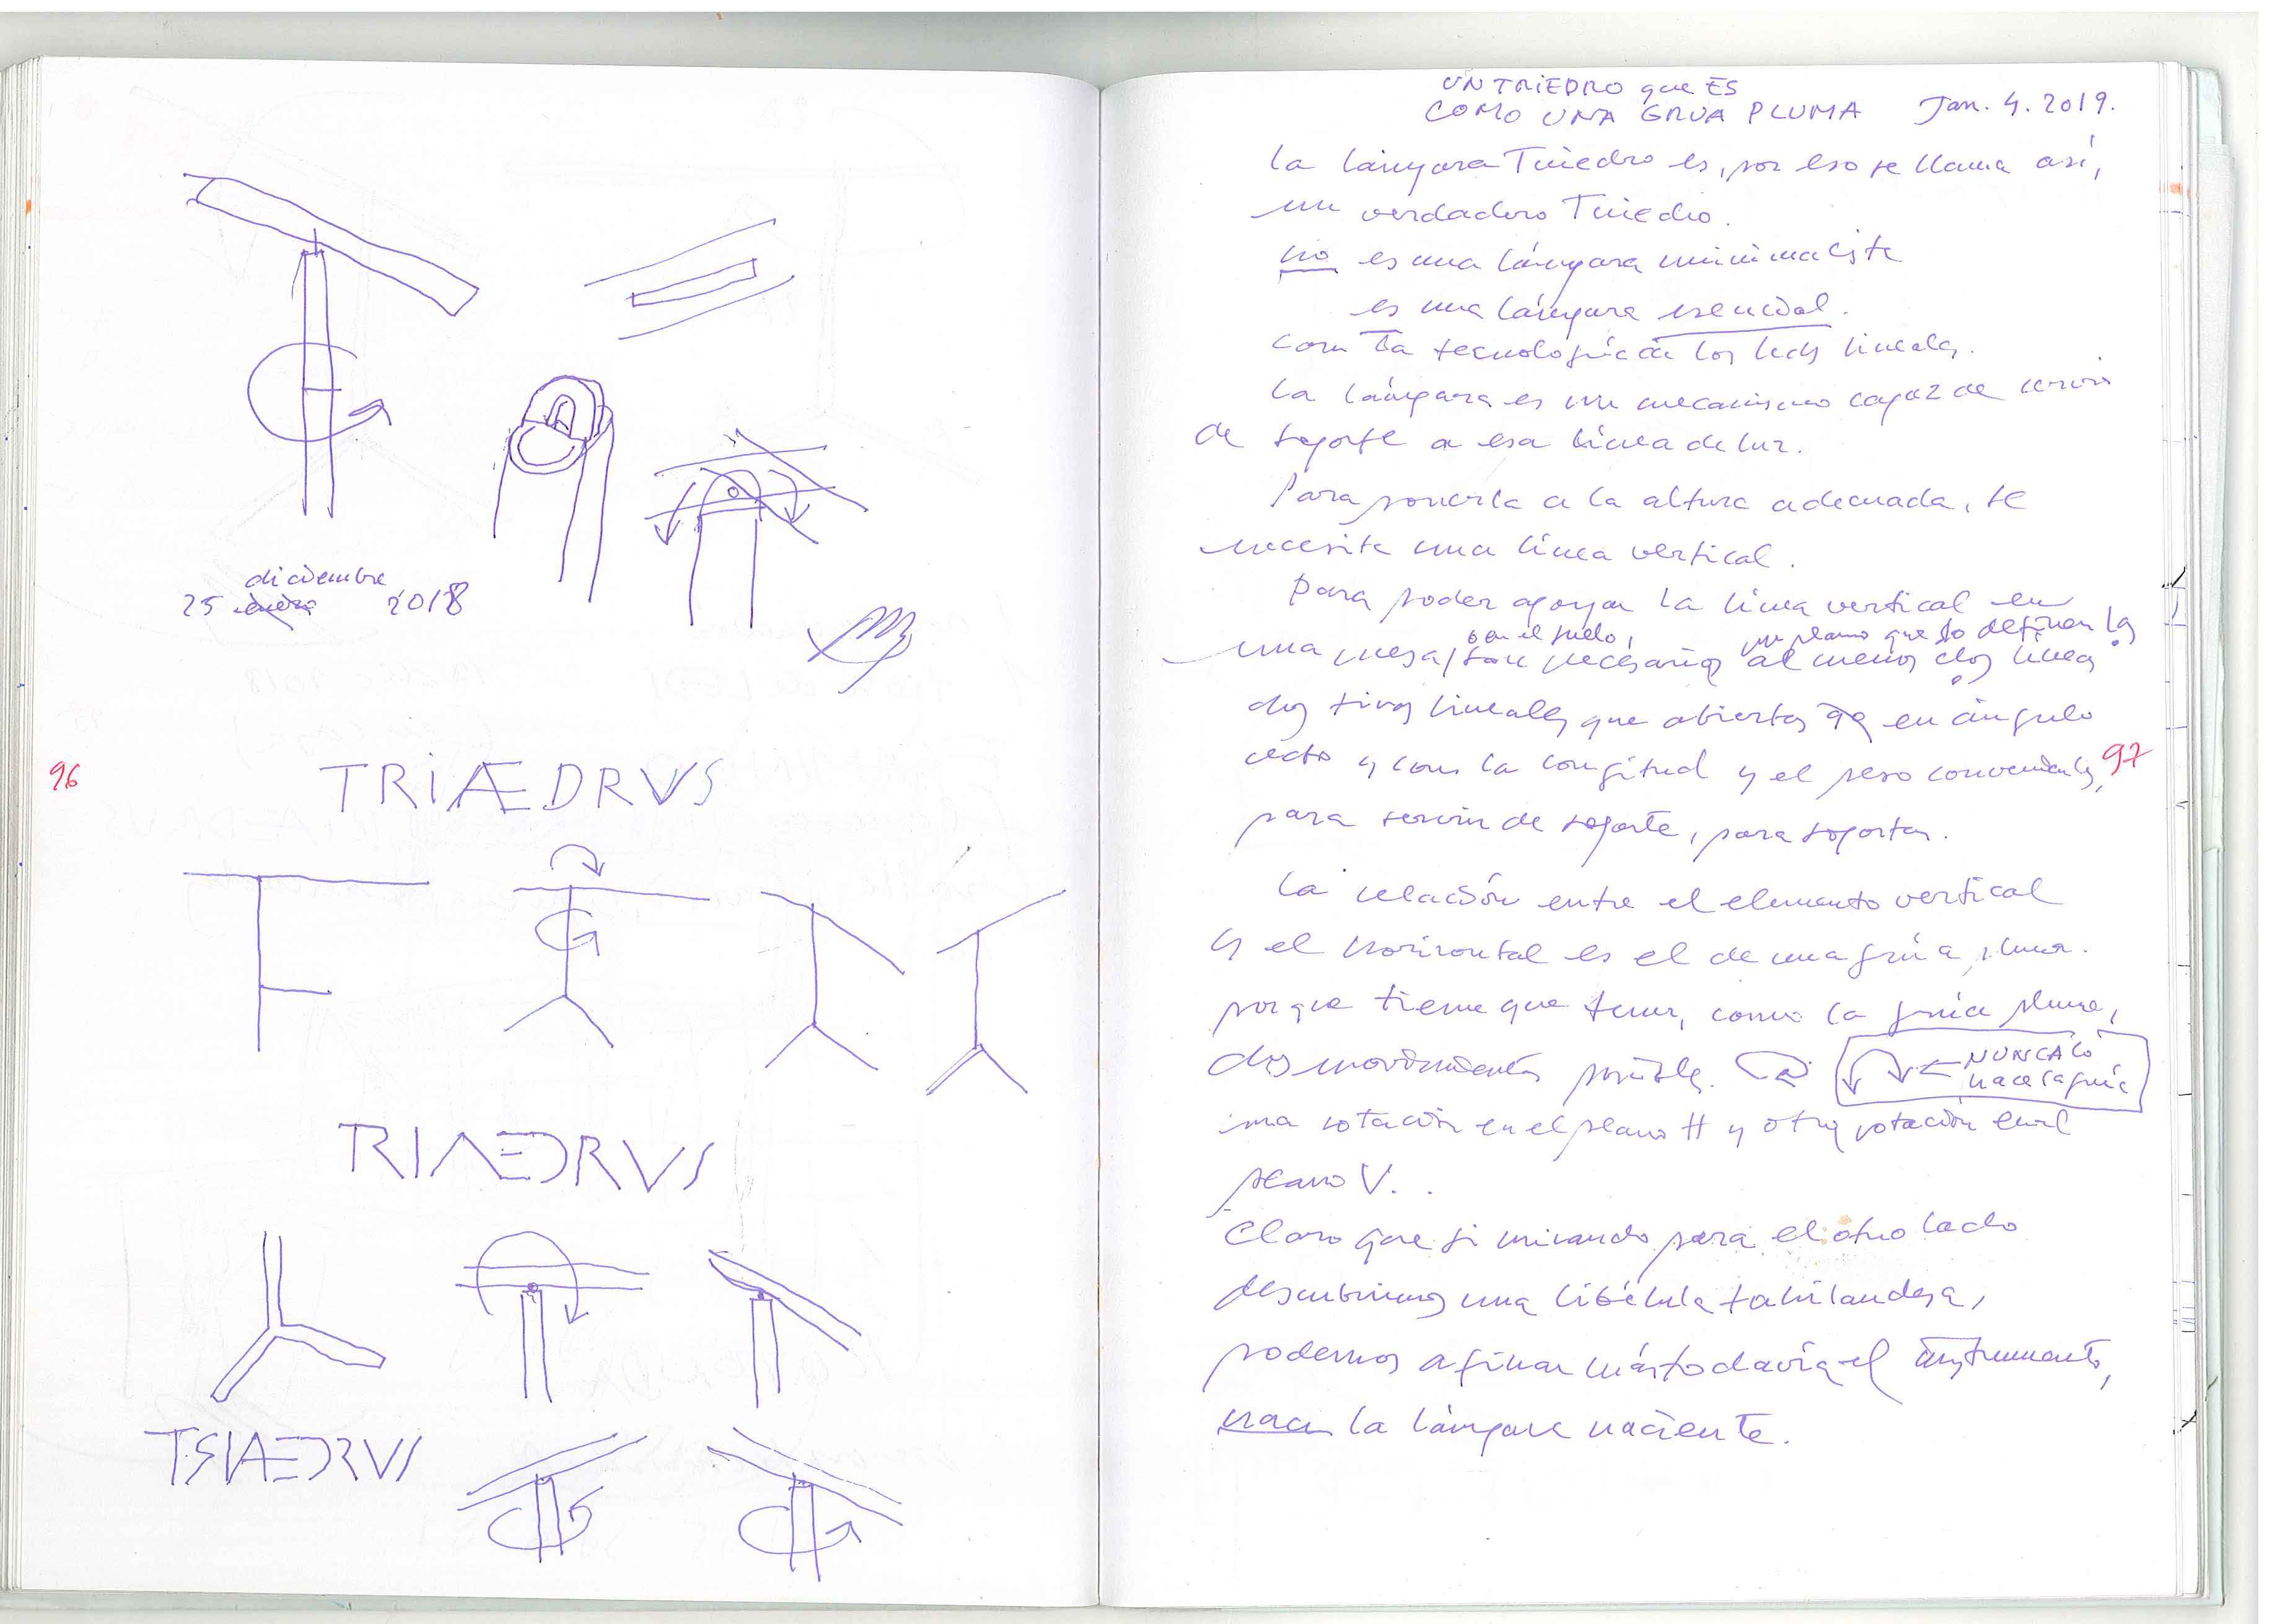 diciembre
25 enero 2018
96
TRiÆDRVS
TRIAEDRVS
TSIAEDRVS
UN TRiEDRO que ES
COMO UNA GRUA PLUMA Jan. 4. 2019.
la lámpara Triedro es, por eso se llama así,
un verdadero Triedro.
no es una lámpara minimaliste
es una lámpara esencial.
con la tecnología de los leds lineales.
la lámpara es un mecanismo capaz de servir
de soporte a esa línea de luz.
Para ponerla a la altura adecuada, se
necesita una línea vertical.
Para poder apoyar la línea vertical en
o en el suelo, un plano que lo definen las
una mesa, son necesarios al menos dos líneas
dos tiras lineales que abiertas en ángulo
recto y con la longitud y el peso convenientes, 97
para servir de soporte, para soportar.
la relación entre el elemento vertical
y el horizontal es el de una grúa pluma.
porque tiene que tener, como la grúa pluma,
dos movimientos posibles. ← NUNCA LO
hace la grúa
una rotación en el plano H y otra rotación en el
plano V.
Claro que si mirando para el otro lado
descubrimos una libélula tahilandesa,
podemos afinar más todavía el instrumento,
nace la lámpara naciente.